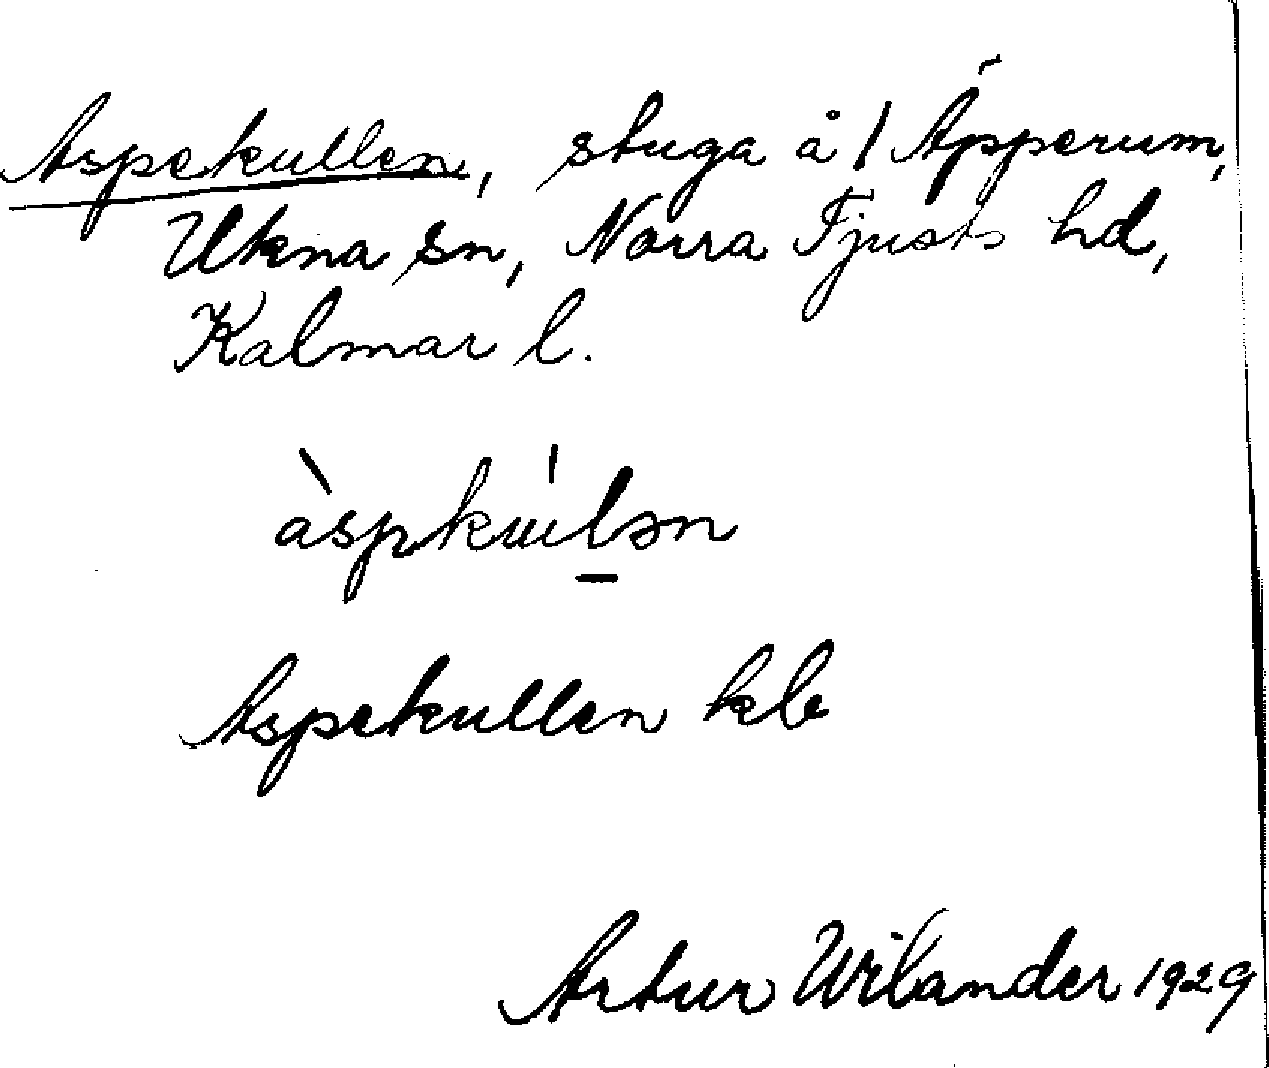 Aspekullen, stuga å / Äpperum,
Ukna sn, Norra Tjusts hd,
Kalmar l.
àspkúlən
Aspekullen kb
Artur Wilander 1929